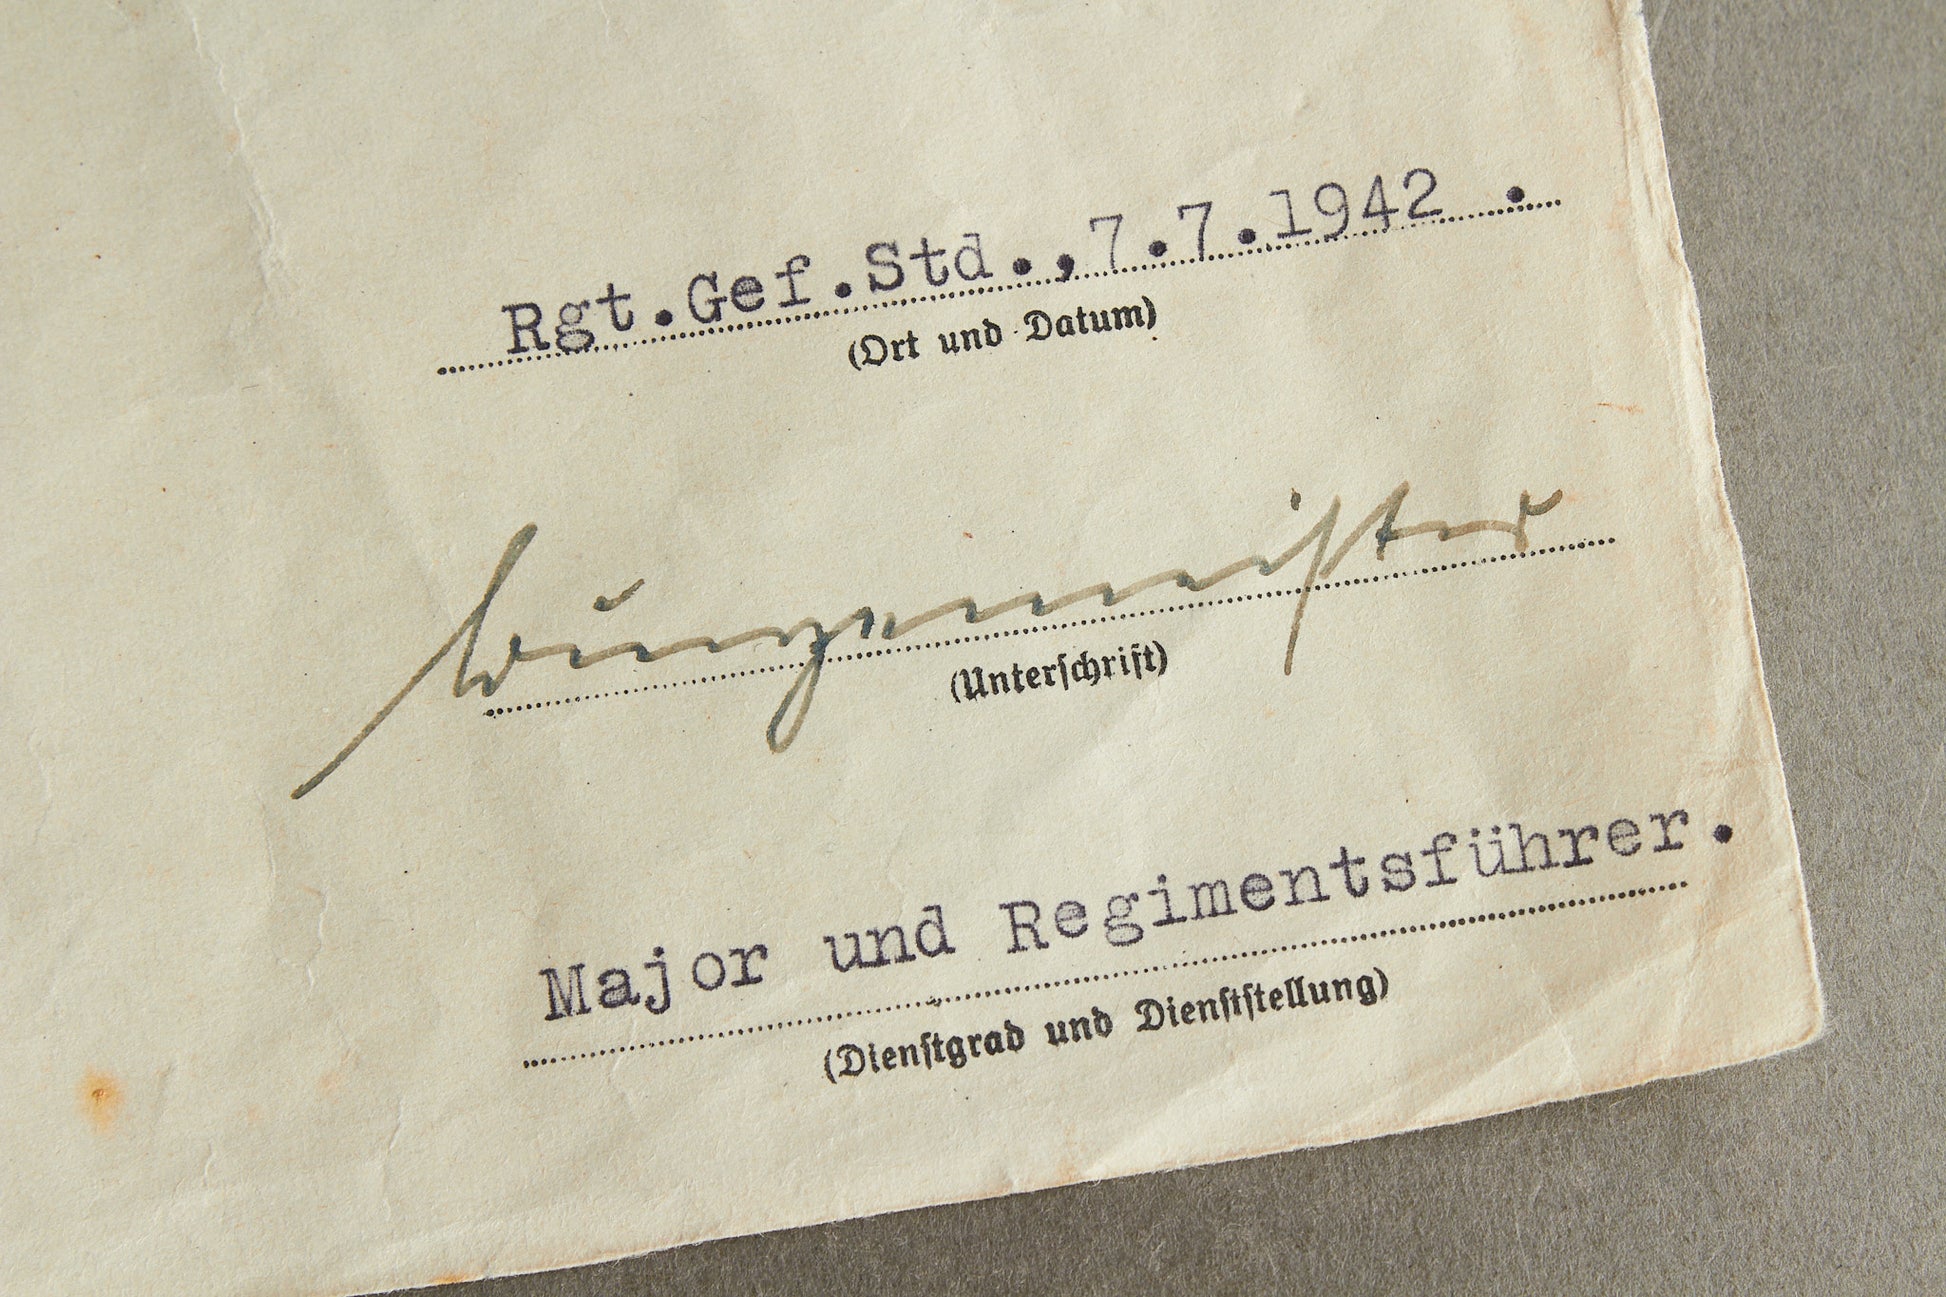 Rgt.Gef.Std.,7.7.1942 .
(Ort und Datum)
Burgemeister
(Unterschrift)
Major und Regimentsführer.
(Dienstgrad und Dienststellung)